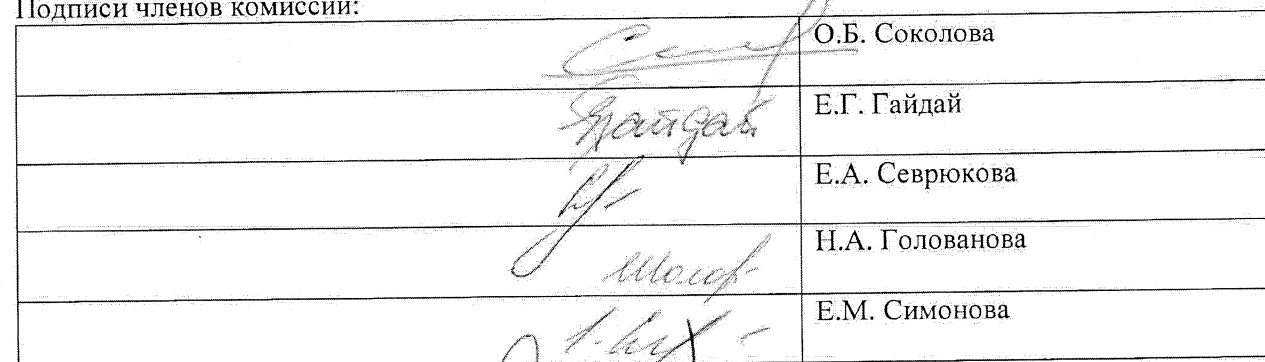 Подписи членов комиссии:
О.Б. Соколова
Гайдай Е.Г. Гайдай
Е.А. Севрюкова
Н.А. Голованова
Е.М. Симонова